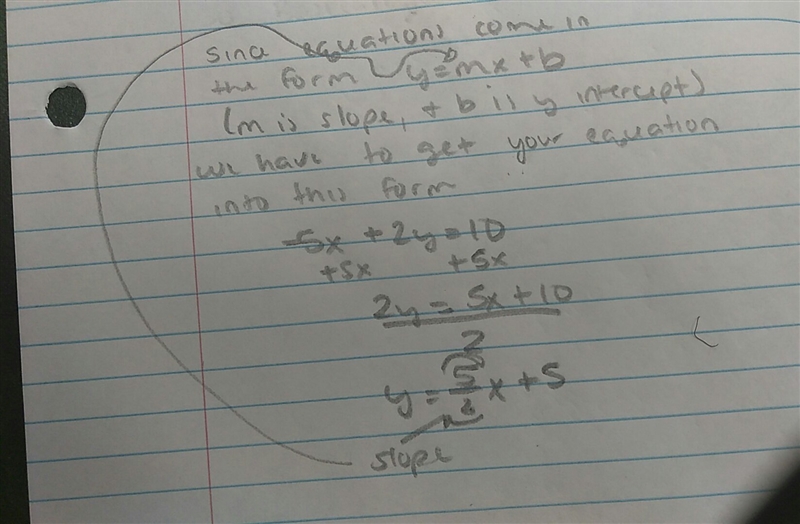 since equations come in
the form y=mx+b
(m is slope, + b is y intercept)
we have to get your equation
into this form
-5x + 2y = 10
+5x +5x
2y = 5x + 10
2
y = 5/2 x + 5
slope